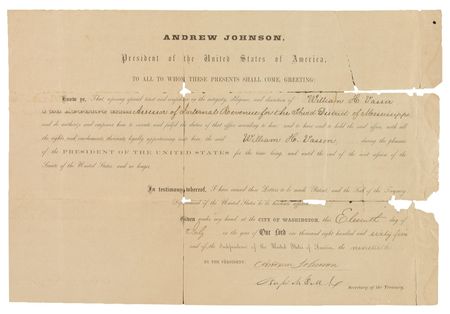 ANDREW JOHNSON,
President of the United States of America,
TO ALL TO WHOM THESE PRESENTS SHALL COME, GREETING:
Know ye, That, reposing special trust and confidence in the integrity, diligence, and discretion of William H. Vasser
Assessor of Internal Revenue for the Third District of Mississippi
and do authorize and empower him to execute and fulfil the duties of that office according to law: and to have and to hold the said office, with all
the rights and emoluments thereunto legally appertaining unto him, the said William H. Vasser during the pleasure
of the PRESIDENT OF THE UNITED STATES for the time being, and until the end of the next session of the
Senate of the United States, and no longer.
In testimony whereof, I have caused these Letters to be made Patent, and the Seal of the Treasury
Department of the United States to be hereunto affixed.
Given under my hand at the CITY OF WASHINGTON, this Eleventh day of
July in the year of Our Lord one thousand eight hundred and sixty five
and of the Independence of the United States of America the ninetieth
BY THE PRESIDENT:
Andrew Johnson
Secretary of the Treasury.